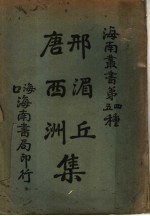 海南叢書第四五種
邢湄丘
唐西洲集
海口海南書局印行